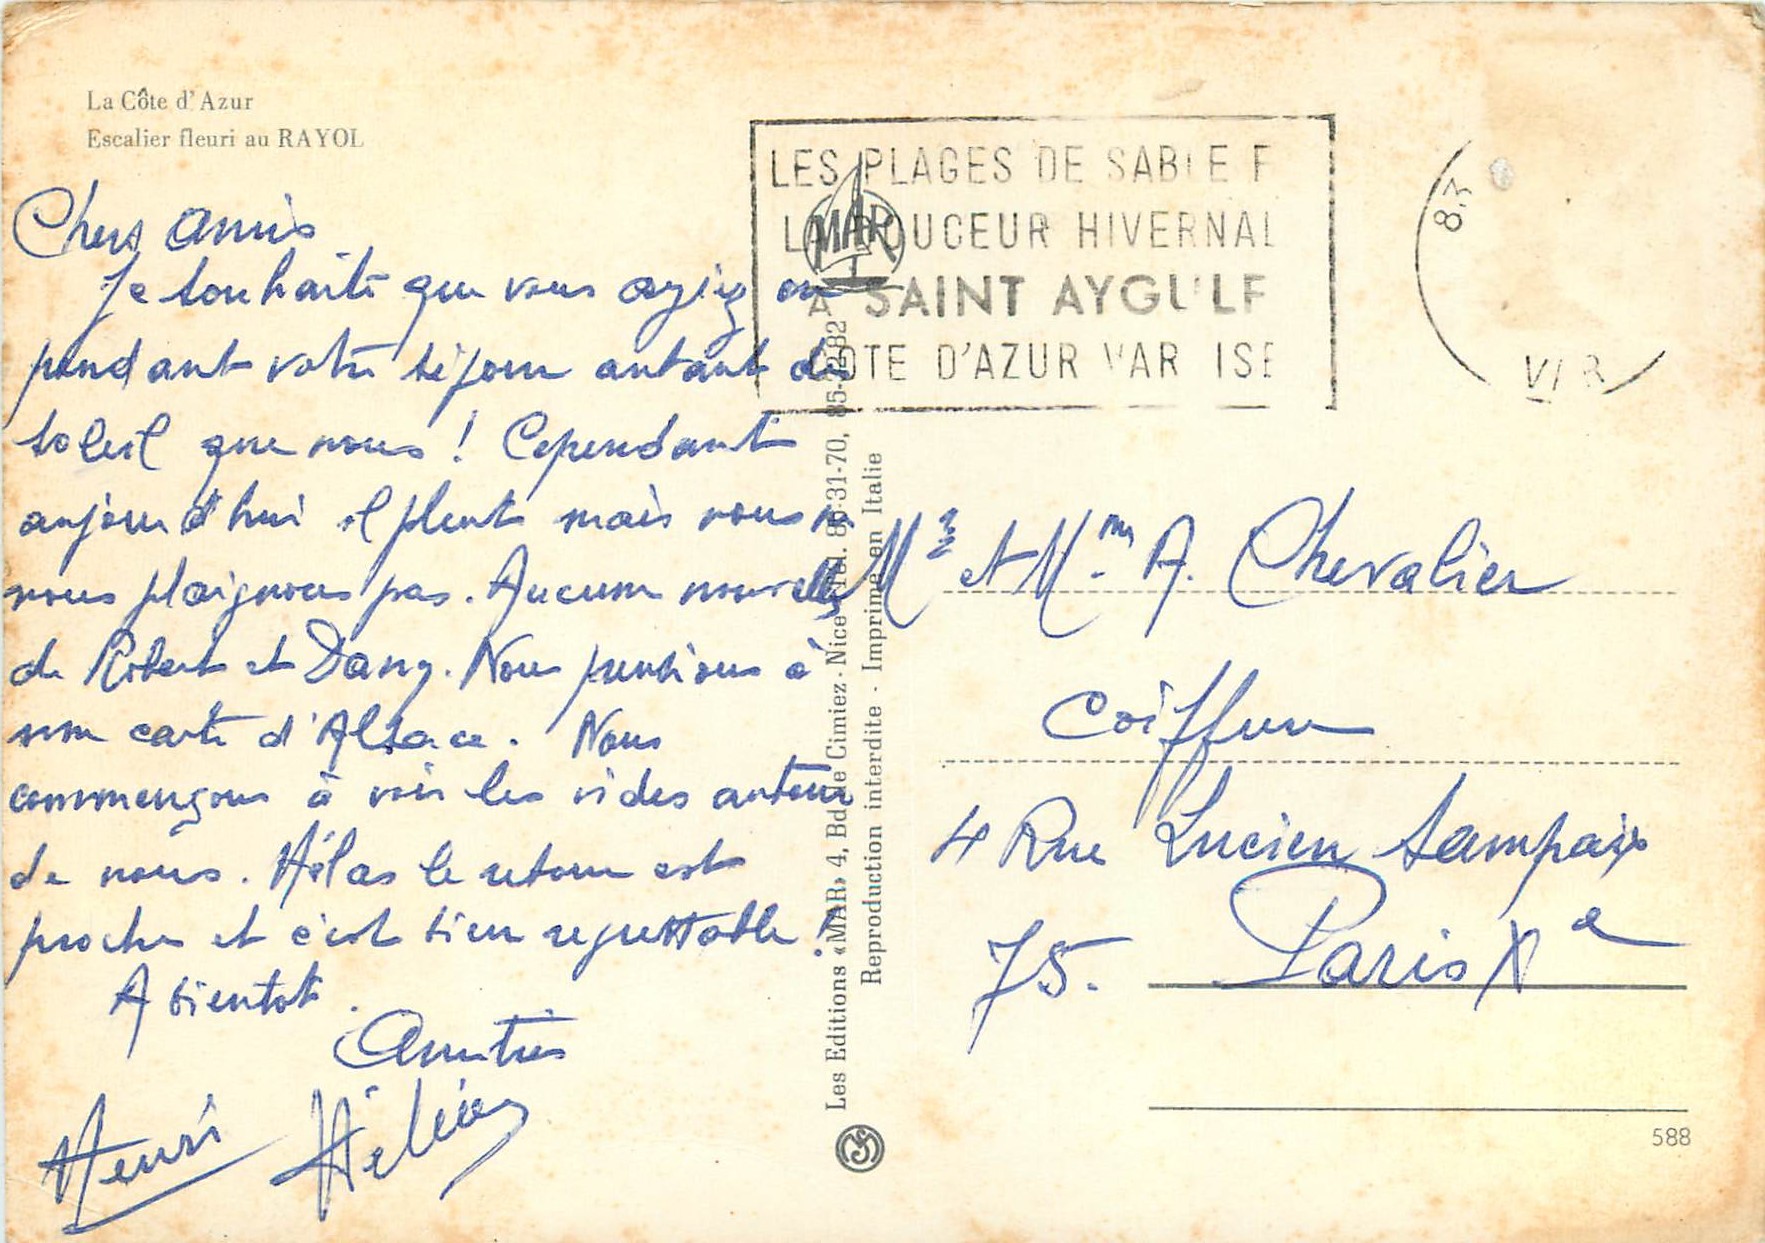 La Côte d'Azur
Escalier fleuri au RAYOL
Chers amis
Je souhaite que vous ayiez eu
pendant votre séjour autant de
soleil que nous ! Cependant
aujourd'hui il pleut mais nous ne
nous plaignons pas. Aucune nouvelle
de Robert et Dany. Nous pensions à
une carte d'Alsace. Nous
commençons à voir les vides autour
de nous. Hélas le retour est
proche et c'est bien regrettable !
A bientôt.
Amitiés
Henri Hélène
LES PLAGES DE SABLE F
LA DOUCEUR HIVERNAL
A SAINT AYGULF
COTE D'AZUR VAR ISE
83
VAR
MAR
Les Editions «MAR» 4, Bd de Cimiez - Nice Tel. 85-31-70, 85-32-82
Reproduction interdite - Imprimé en Italie
Mr et Mme A. Chevalier
Coiffeur
4 Rue Lucien Sampaix
75. Paris Xe
588